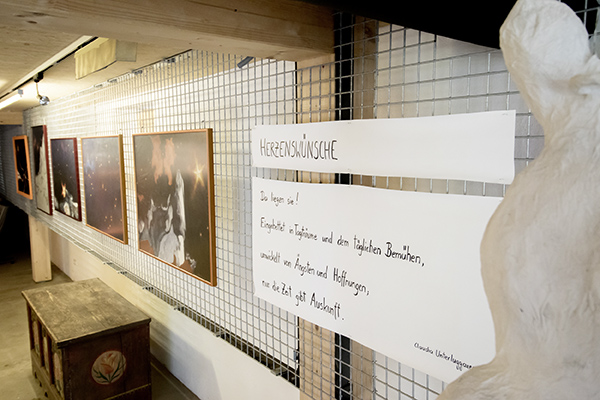 HERZENSWÜNSCHE
Da liegen sie!
Eingebettet in Tagträume und dem täglichen Bemühen,
umwickelt von Ängsten und Hoffnungen,
nur die Zeit gibt Auskunft.
Claudia